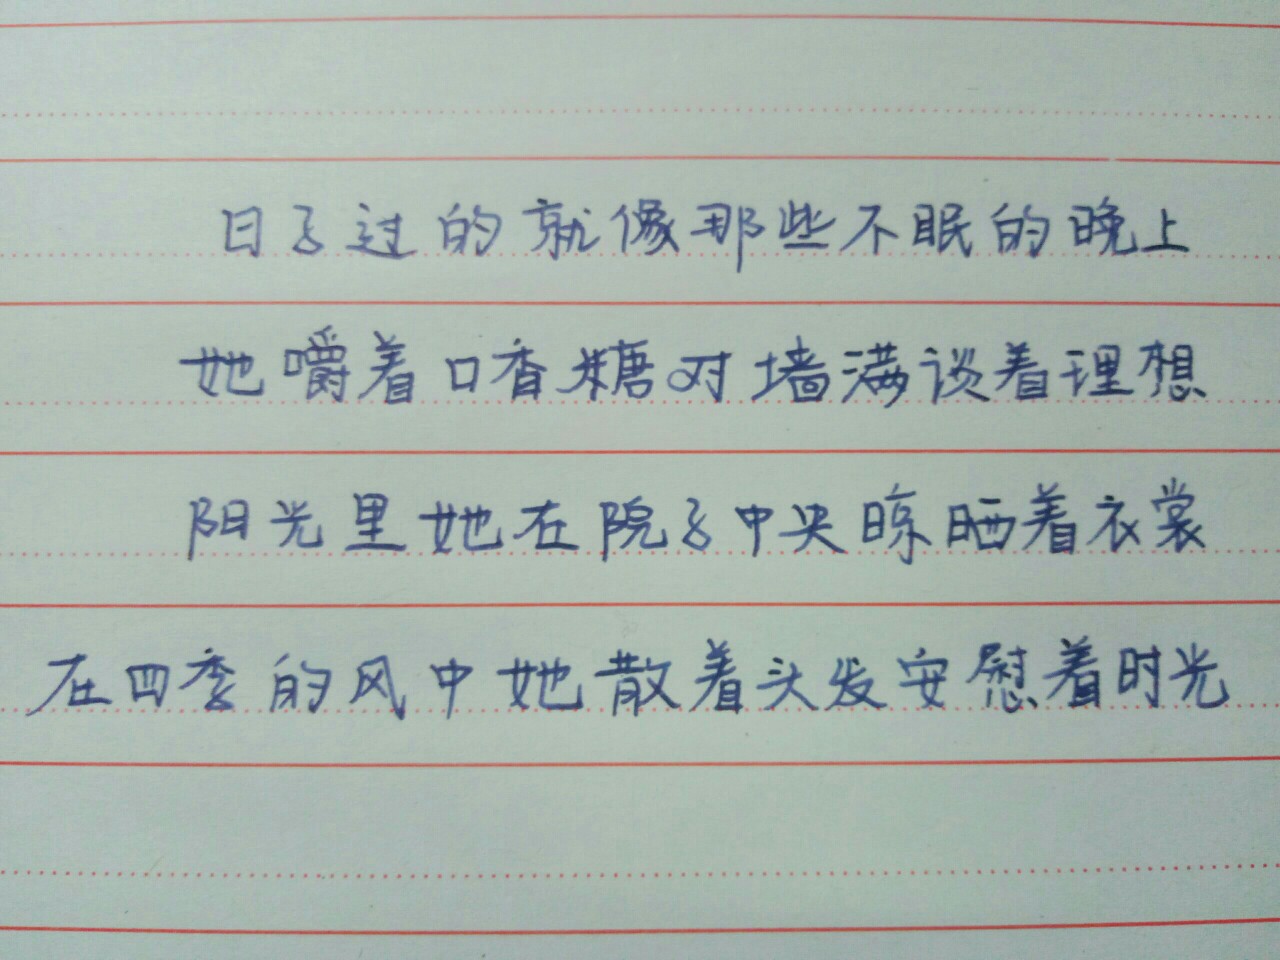 日子过的就像那些不眠的晚上
她嚼着口香糖对墙满谈着理想
阳光里她在院子中央晾晒着衣裳
在四季的风中她散着头发安慰着时光